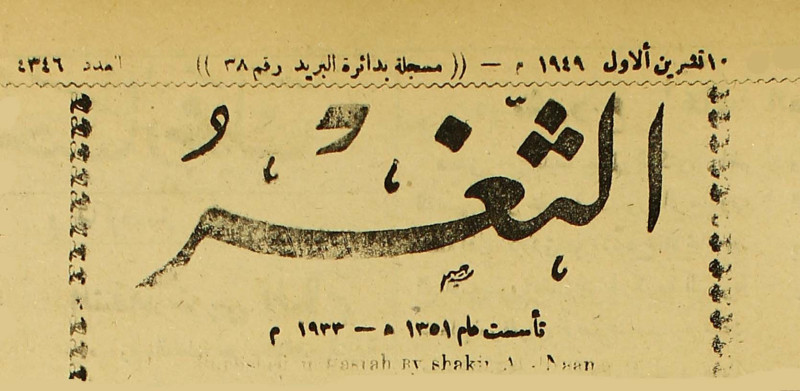 ١٠ تشرين ألاول ١٩٤٩ م — (( مسجلة بدائرة البريد رقم ٣٨ )) العدد ٤٣٤٦
الثغر
تأسست عام ١٣٥١ ه — ١٩٣٣ م
Basrah By shakir